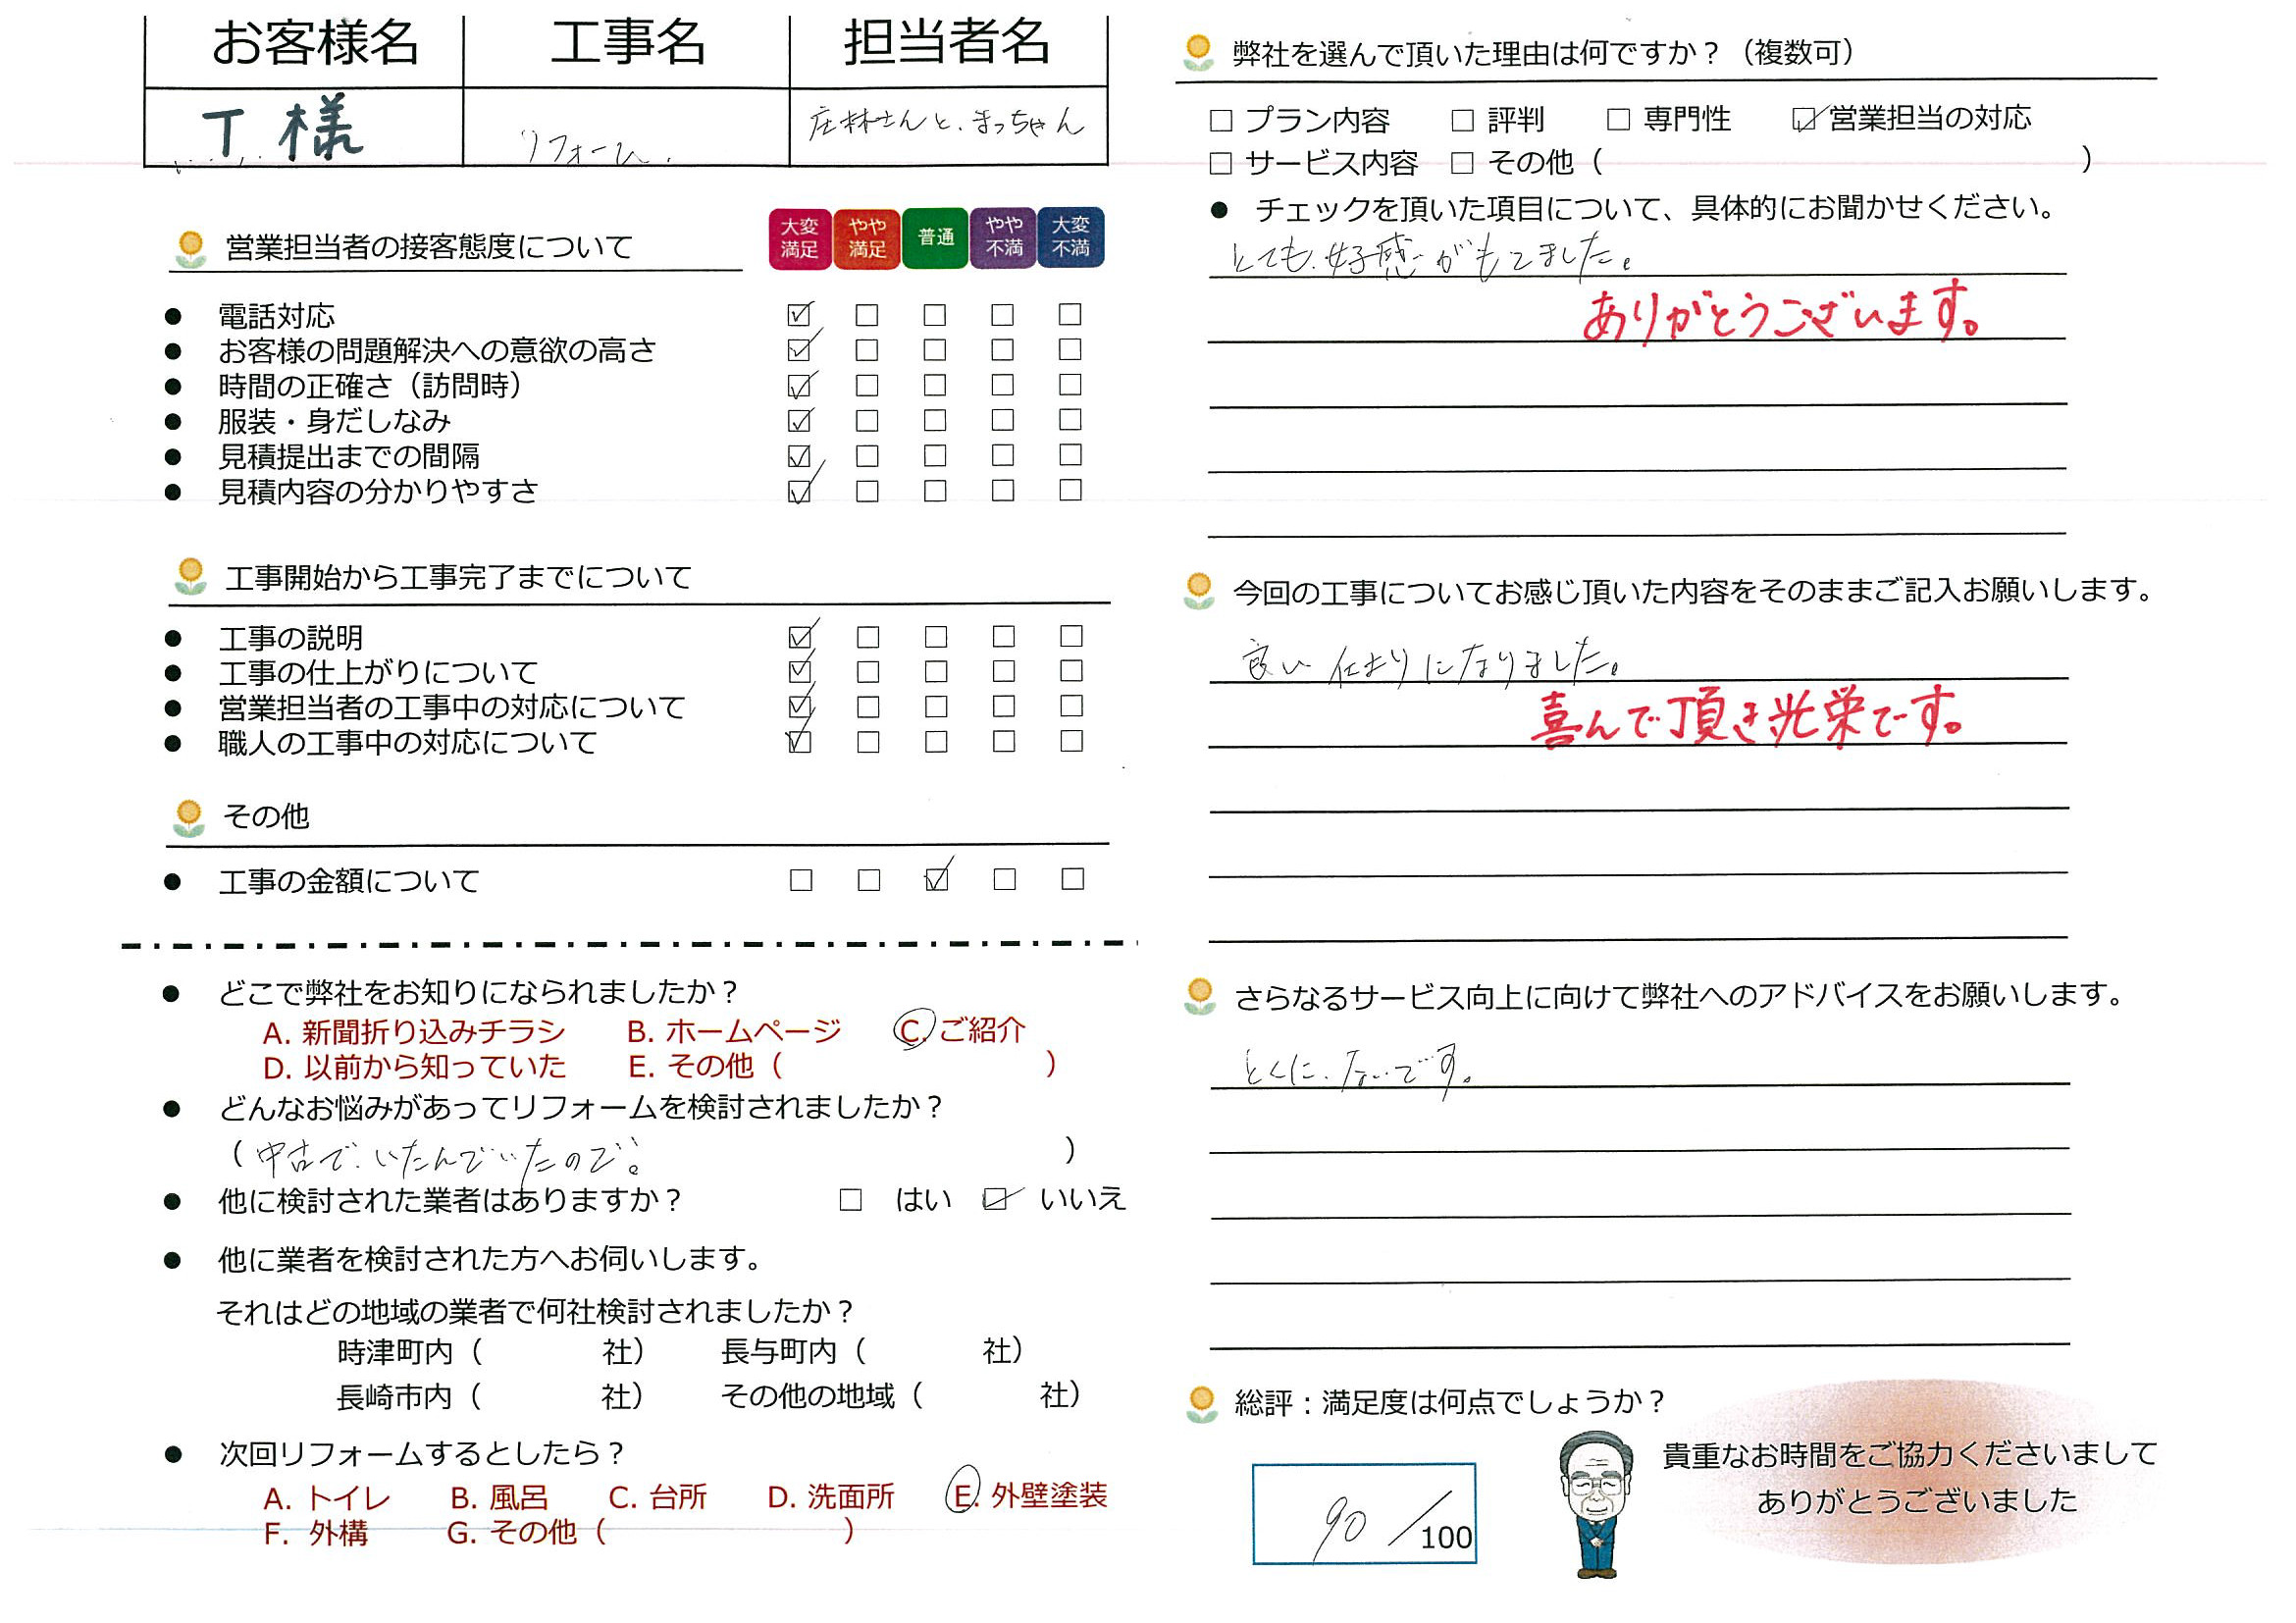 お客様名 工事名 担当者名
T 様 リフォーム. 庄林さんと、まっちゃん
大変満足 やや満足 普通 やや不満 大変不満
営業担当者の接客態度について
● 電話対応 ☑ □ □ □ □
● お客様の問題解決への意欲の高さ ☑ □ □ □ □
● 時間の正確さ（訪問時） ☑ □ □ □ □
● 服装・身だしなみ ☑ □ □ □ □
● 見積提出までの間隔 ☑ □ □ □ □
● 見積内容の分かりやすさ ☑ □ □ □ □
工事開始から工事完了までについて
● 工事の説明 ☑ □ □ □ □
● 工事の仕上がりについて ☑ □ □ □ □
● 営業担当者の工事中の対応について ☑ □ □ □ □
● 職人の工事中の対応について ☑ □ □ □ □
その他
● 工事の金額について □ □ ☑ □ □
● どこで弊社をお知りになられましたか？
A. 新聞折り込みチラシ B. ホームページ C. ご紹介
D. 以前から知っていた E. その他（ ）
● どんなお悩みがあってリフォームを検討されましたか？
（ 中古で、いたんでいたので。 ）
● 他に検討された業者はありますか？ □ はい ☑ いいえ
● 他に業者を検討された方へお伺いします。
それはどの地域の業者で何社検討されましたか？
時津町内（ 社） 長与町内（ 社）
長崎市内（ 社） その他の地域（ 社）
● 次回リフォームするとしたら？
A. トイレ B. 風呂 C. 台所 D. 洗面所 E. 外壁塗装
F. 外構 G. その他（ ）
弊社を選んで頂いた理由は何ですか？（複数可）
□ プラン内容 □ 評判 □ 専門性 ☑ 営業担当の対応
□ サービス内容 □ その他（ ）
● チェックを頂いた項目について、具体的にお聞かせください。
とても、好感がもてました。
ありがとうございます。
今回の工事についてお感じ頂いた内容をそのままご記入お願いします。
良い仕まりになりました。
喜んで頂き光栄です。
さらなるサービス向上に向けて弊社へのアドバイスをお願いします。
とくに、ないです。
総評：満足度は何点でしょうか？
90／100
貴重なお時間をご協力くださいまして
ありがとうございました